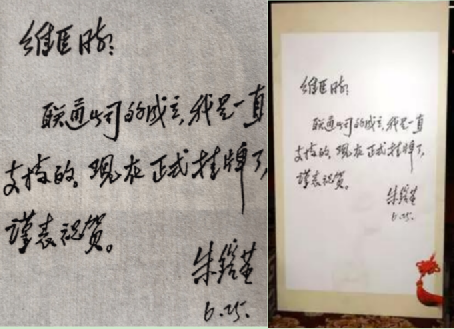 维臣同志:
联通公司的成立,我是一直
支持的。现在正式挂牌了,
谨表祝贺。
朱镕基
6.25.
维臣同志:
联通公司的成立,我是一直
支持的。现在正式挂牌了,
谨表祝贺。
朱镕基
6.25.